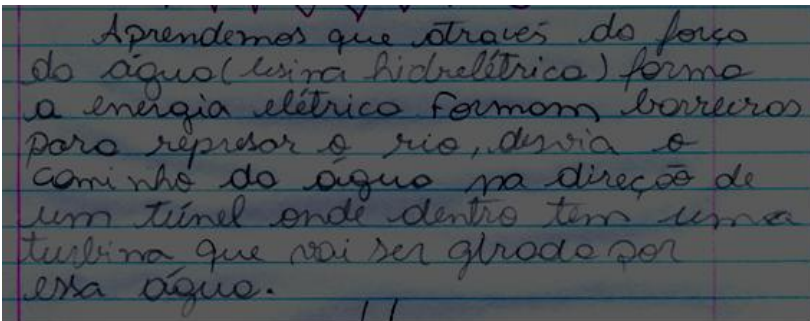 Aprendemos que através da força
da água (usina hidrelétrica) forma
a energia elétrica Formam barreiras
para represar o rio, desvia o
caminho da água na direção de
um túnel onde dentro tem uma
turbina que vai ser girada por
essa água.